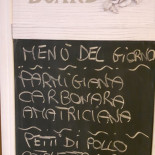 BOARD
MENÙ DEL GIORNO
PARMIGIANA
CARBONARA
AMATRICIANA
PETTI DI POLLO